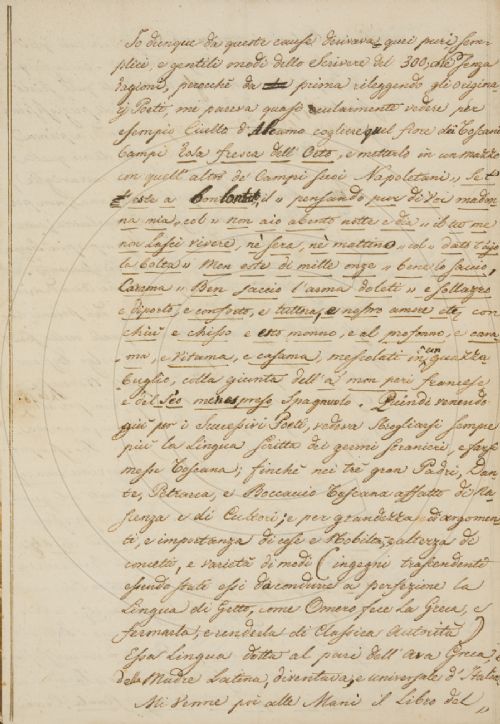 Io dunque da queste cause derivava quei puri, sem-
plici, e gentili modi dello Scrivere del 300, che senza
ragioni, perocchè da prima rileggendo gli origina-
rj Poeti, mi pareva quasi ocularmente vedere per
esempio Ciullo d'Alcamo cogliere quel fiore dai Toscani
Campi Rosa fresca dell'Orto, e metterlo in un mazzo
con quell'altro de' Campi suoi Napoletani „ Se t'
este a bontate, il „ pensando pur di voi madon-
na mia „ col „ non aio abento notte e dia „ il tuo me
non lasci vivere, nè sera, nè mattino „ col „ dato
la bolta „ Mon este di mille onze „ bene lo saccio,
Carama „ Ben saccio l'arma doleti „ e sollazzo
e diporto, e conforto, e tuttora, e nostro amore etc, con
chiù e chisso e esto monno, e al profonno, e cara-
ma, e vitama, e casama, mescolati in un guazza-
buglio, colla giunta dell'a mon peri francese
e del Spagnuolo. Quindi venendo
giù per i successivi Poeti, vedeva spogliarsi sempre
più la Lingua scritta dei germi stranieri, e farsi
messe Toscana; finchè nei tre gran Padri, Dan-
te, Petrarca, e Boccaccio Toscana affatto di Na-
scenza e di Cultori; e per grandezza d'argomen-
ti, e importanza di cose e Nobiltà, e altezza di
concetti, e varietà di modi (ingegni trascendenti
essendo stati essi da condurre a perfezione la
Lingua di Getto, come Omero fece la Greca, e
fermarla, e renderla di Classica Autorità)
Essa Lingua dotta al pari dell'Ava Greca, e
della Madre Latina, diventava, e universale d'Italia.
Mi venne poi alle Mani il Libro del